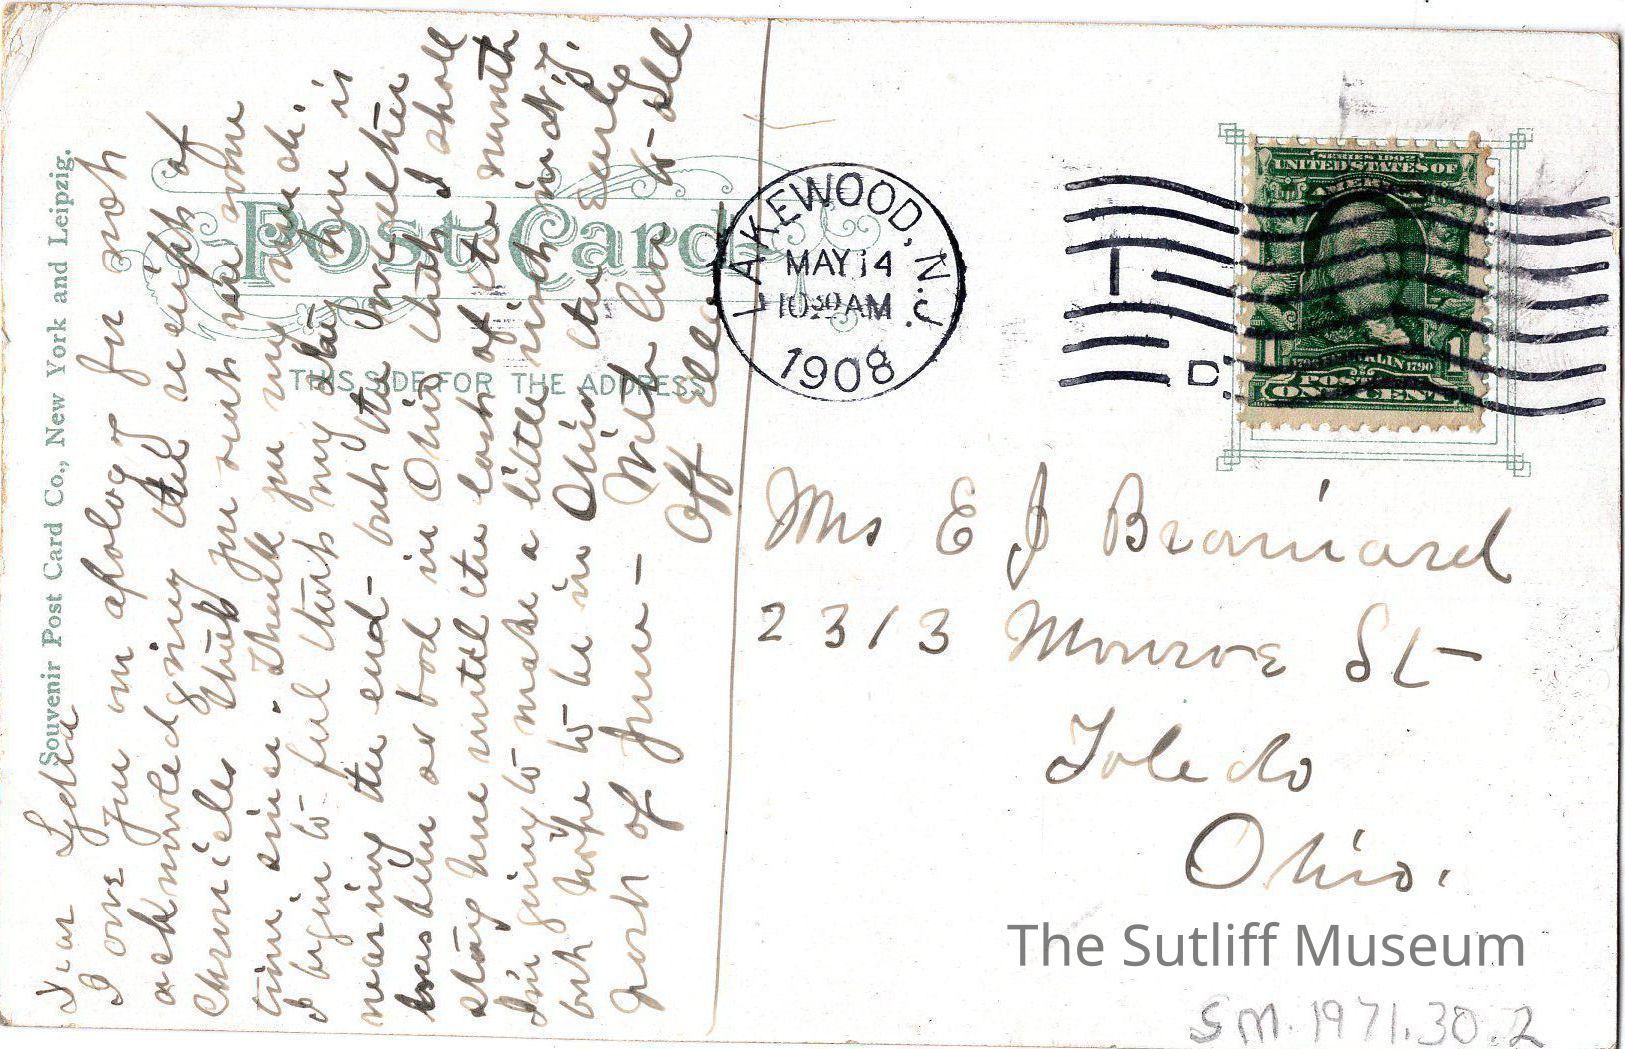 Souvenir Post Card Co., New York and Leipzig.
Post Card
THIS SIDE FOR THE ADDRESS
Dear Lydia
I owe you an apology for not
acknowledging the receipt of
Chronicles which you sent me some
time since. Thank you very much.
I begin to feel that my stay here is
nearing the end - but the weather
has been so bad in Ohio that I shall
stay here until the last of the month
I'm going to make a little visit in N.Y.
but hope to be in Ohio the early
part of June - With love to all
Aff
LAKEWOOD, N.J.
MAY 14
10 30 AM
1908
1
D
SERIES 1902
UNITED STATES OF
AMERICA
FRANKLIN 1790
POSTAGE
1 1
ONE CENT
Mrs E J Brainard
2313 Monroe St-
Toledo
Ohio.
The Sutliff Museum
SM.1971.30.2